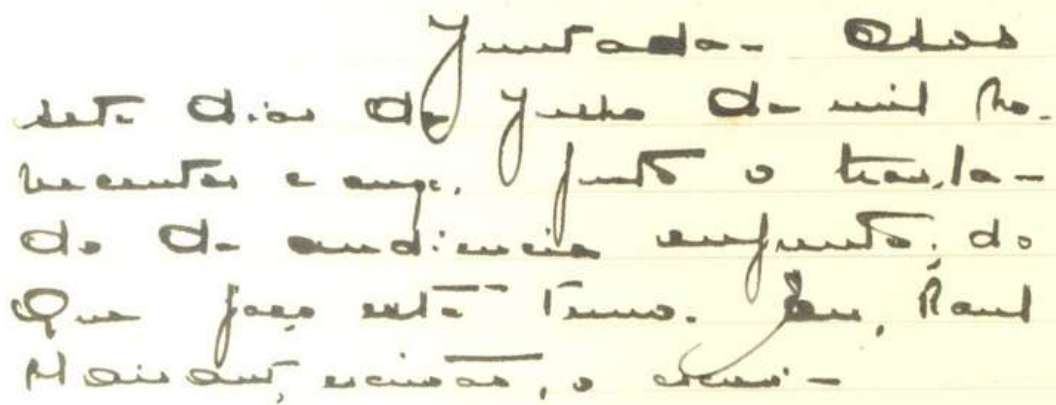 Juntada - Aos
sete dias de Julho de mil no-
vecentos e onze, junto o trasla-
do da audiencia enfrente, do
que faço este termo. Eu, Raul
escrivão, o escrevi -